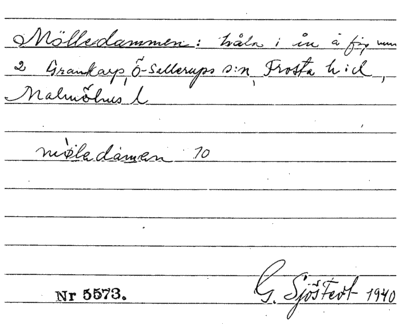 Mölledammen: håla i ån å fig num
2 Grankarp, Ö-Sallerups s:n, Frosta h:d,
Malmöhus l
mö̀ladàmen 10
Nr 5573.
G. Sjöstedt 1940